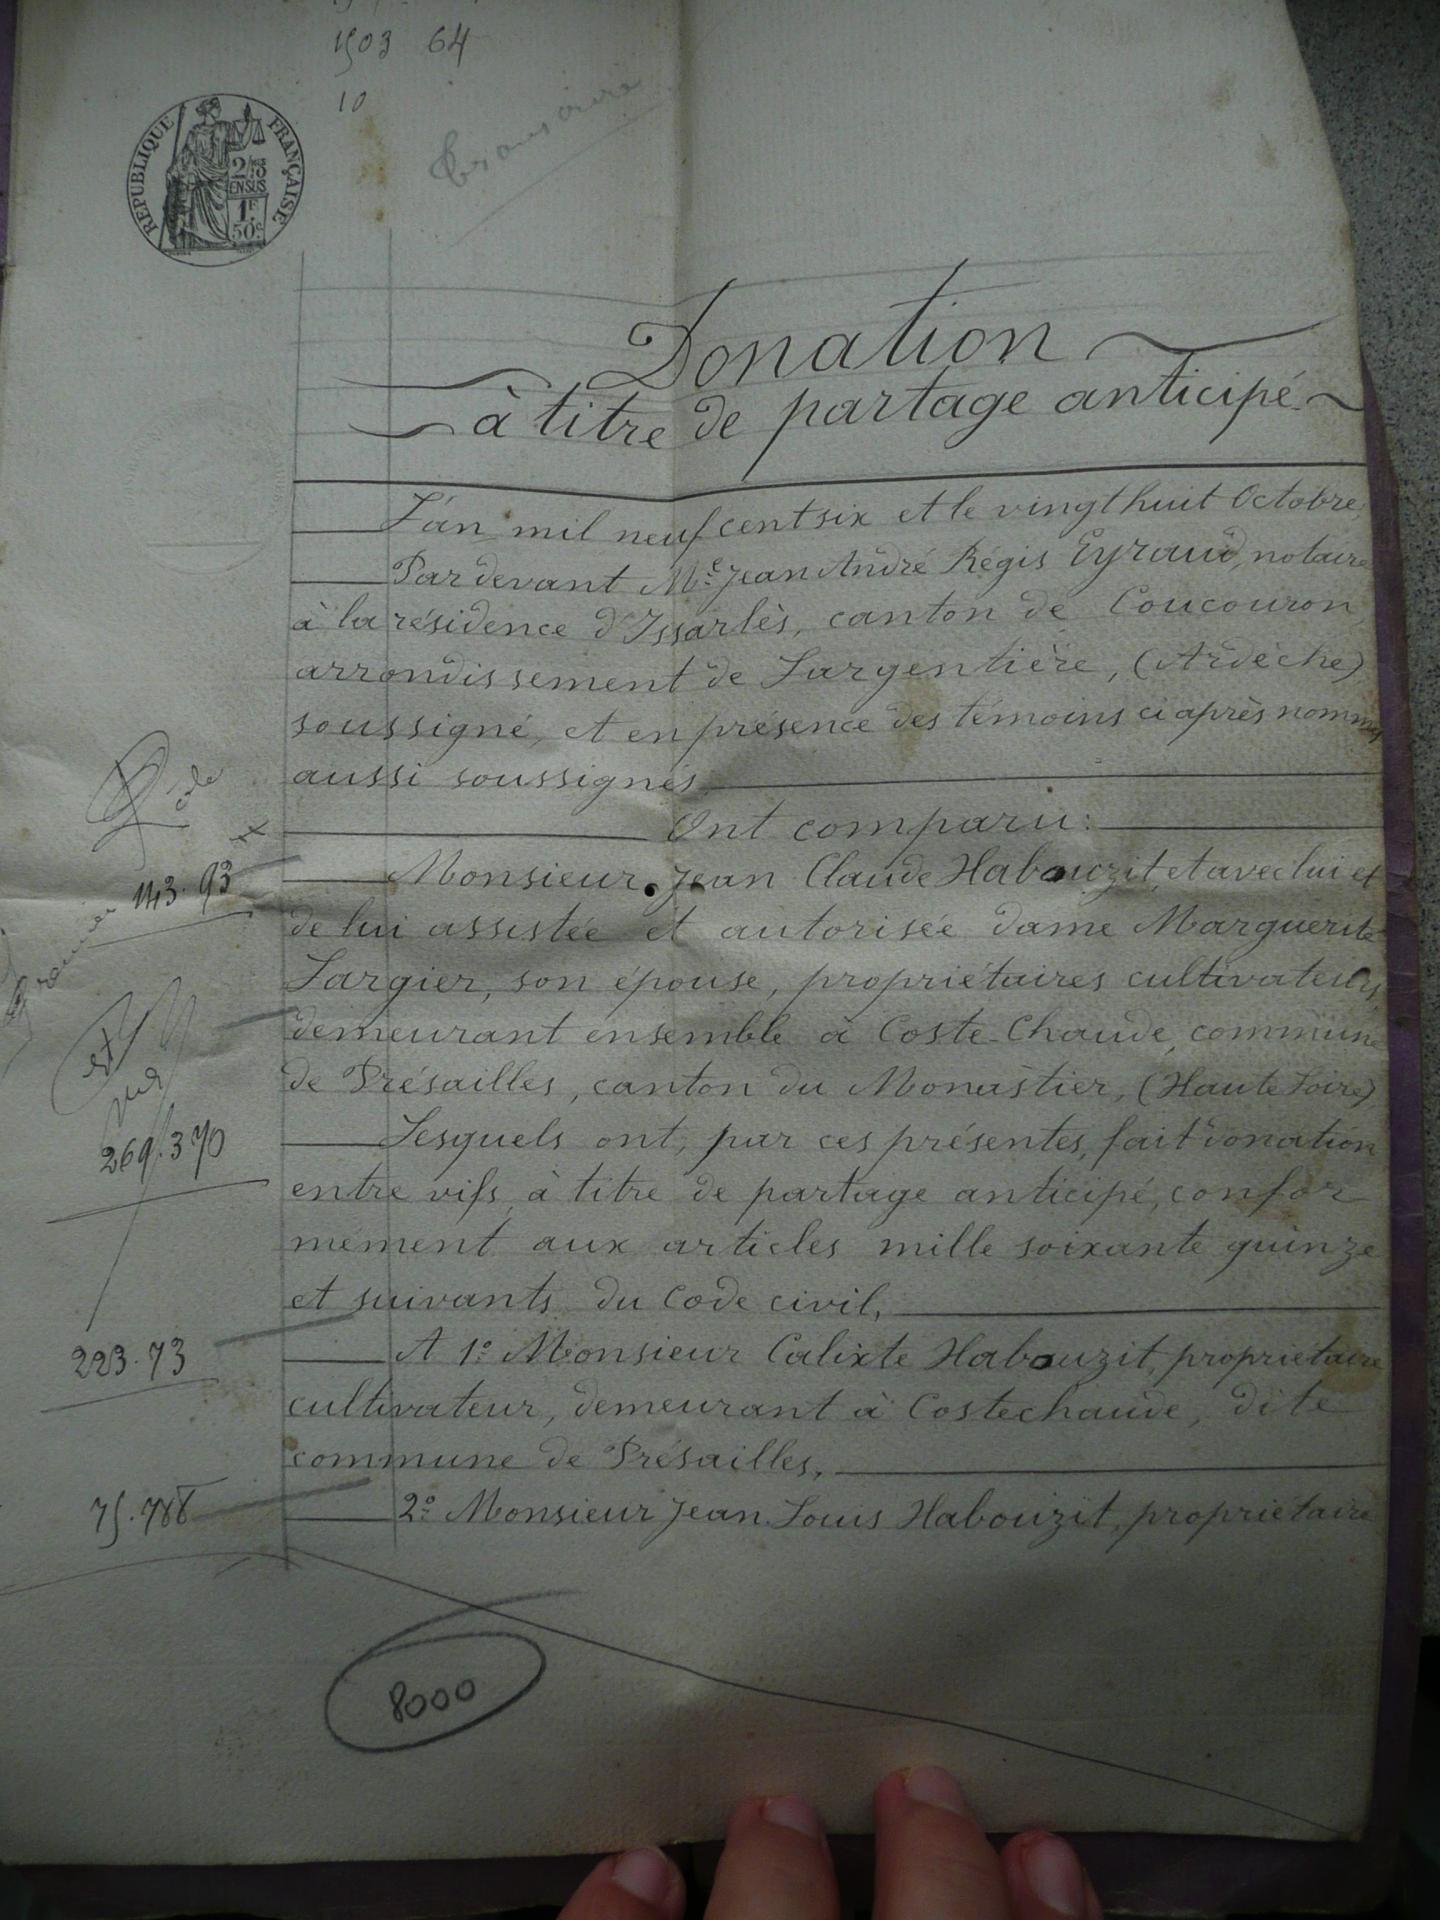 1503 64
10
Transcrire
RÉPUBLIQUE FRANÇAISE
2/10
EN SUS
1F
50c
Donation
à titre de partage anticipé
L'an mil neuf cent six et le vingt huit Octobre,
Par devant Me Jean André Régis Eyraud, notaire
à la résidence d'Issarlès, canton de Coucouron,
arrondissement de Largentière, (Ardèche)
soussigné, et en présence des témoins ci après nommés
aussi soussignés
Ont comparu:
Monsieur Jean Claude Habouzit, et avec lui et
de lui assistée et autorisée dame Marguerite
Largier, son épouse, propriétaires cultivateurs,
demeurant ensemble à Coste-Chaude, commune
de Présailles, canton du Monastier, (Haute Loire)
Lesquels ont, par ces présentes, fait donation
entre vifs, à titre de partage anticipé, confor
mément aux articles mille soixante quinze
et suivants du Code civil,
A 1o Monsieur Calixte Habouzit, propriétaire
cultivateur, demeurant à Costechaude, dite
commune de Présailles,
2o Monsieur Jean Louis Habouzit, propriétaire
143.93
269.370
223.73
75.788
8000